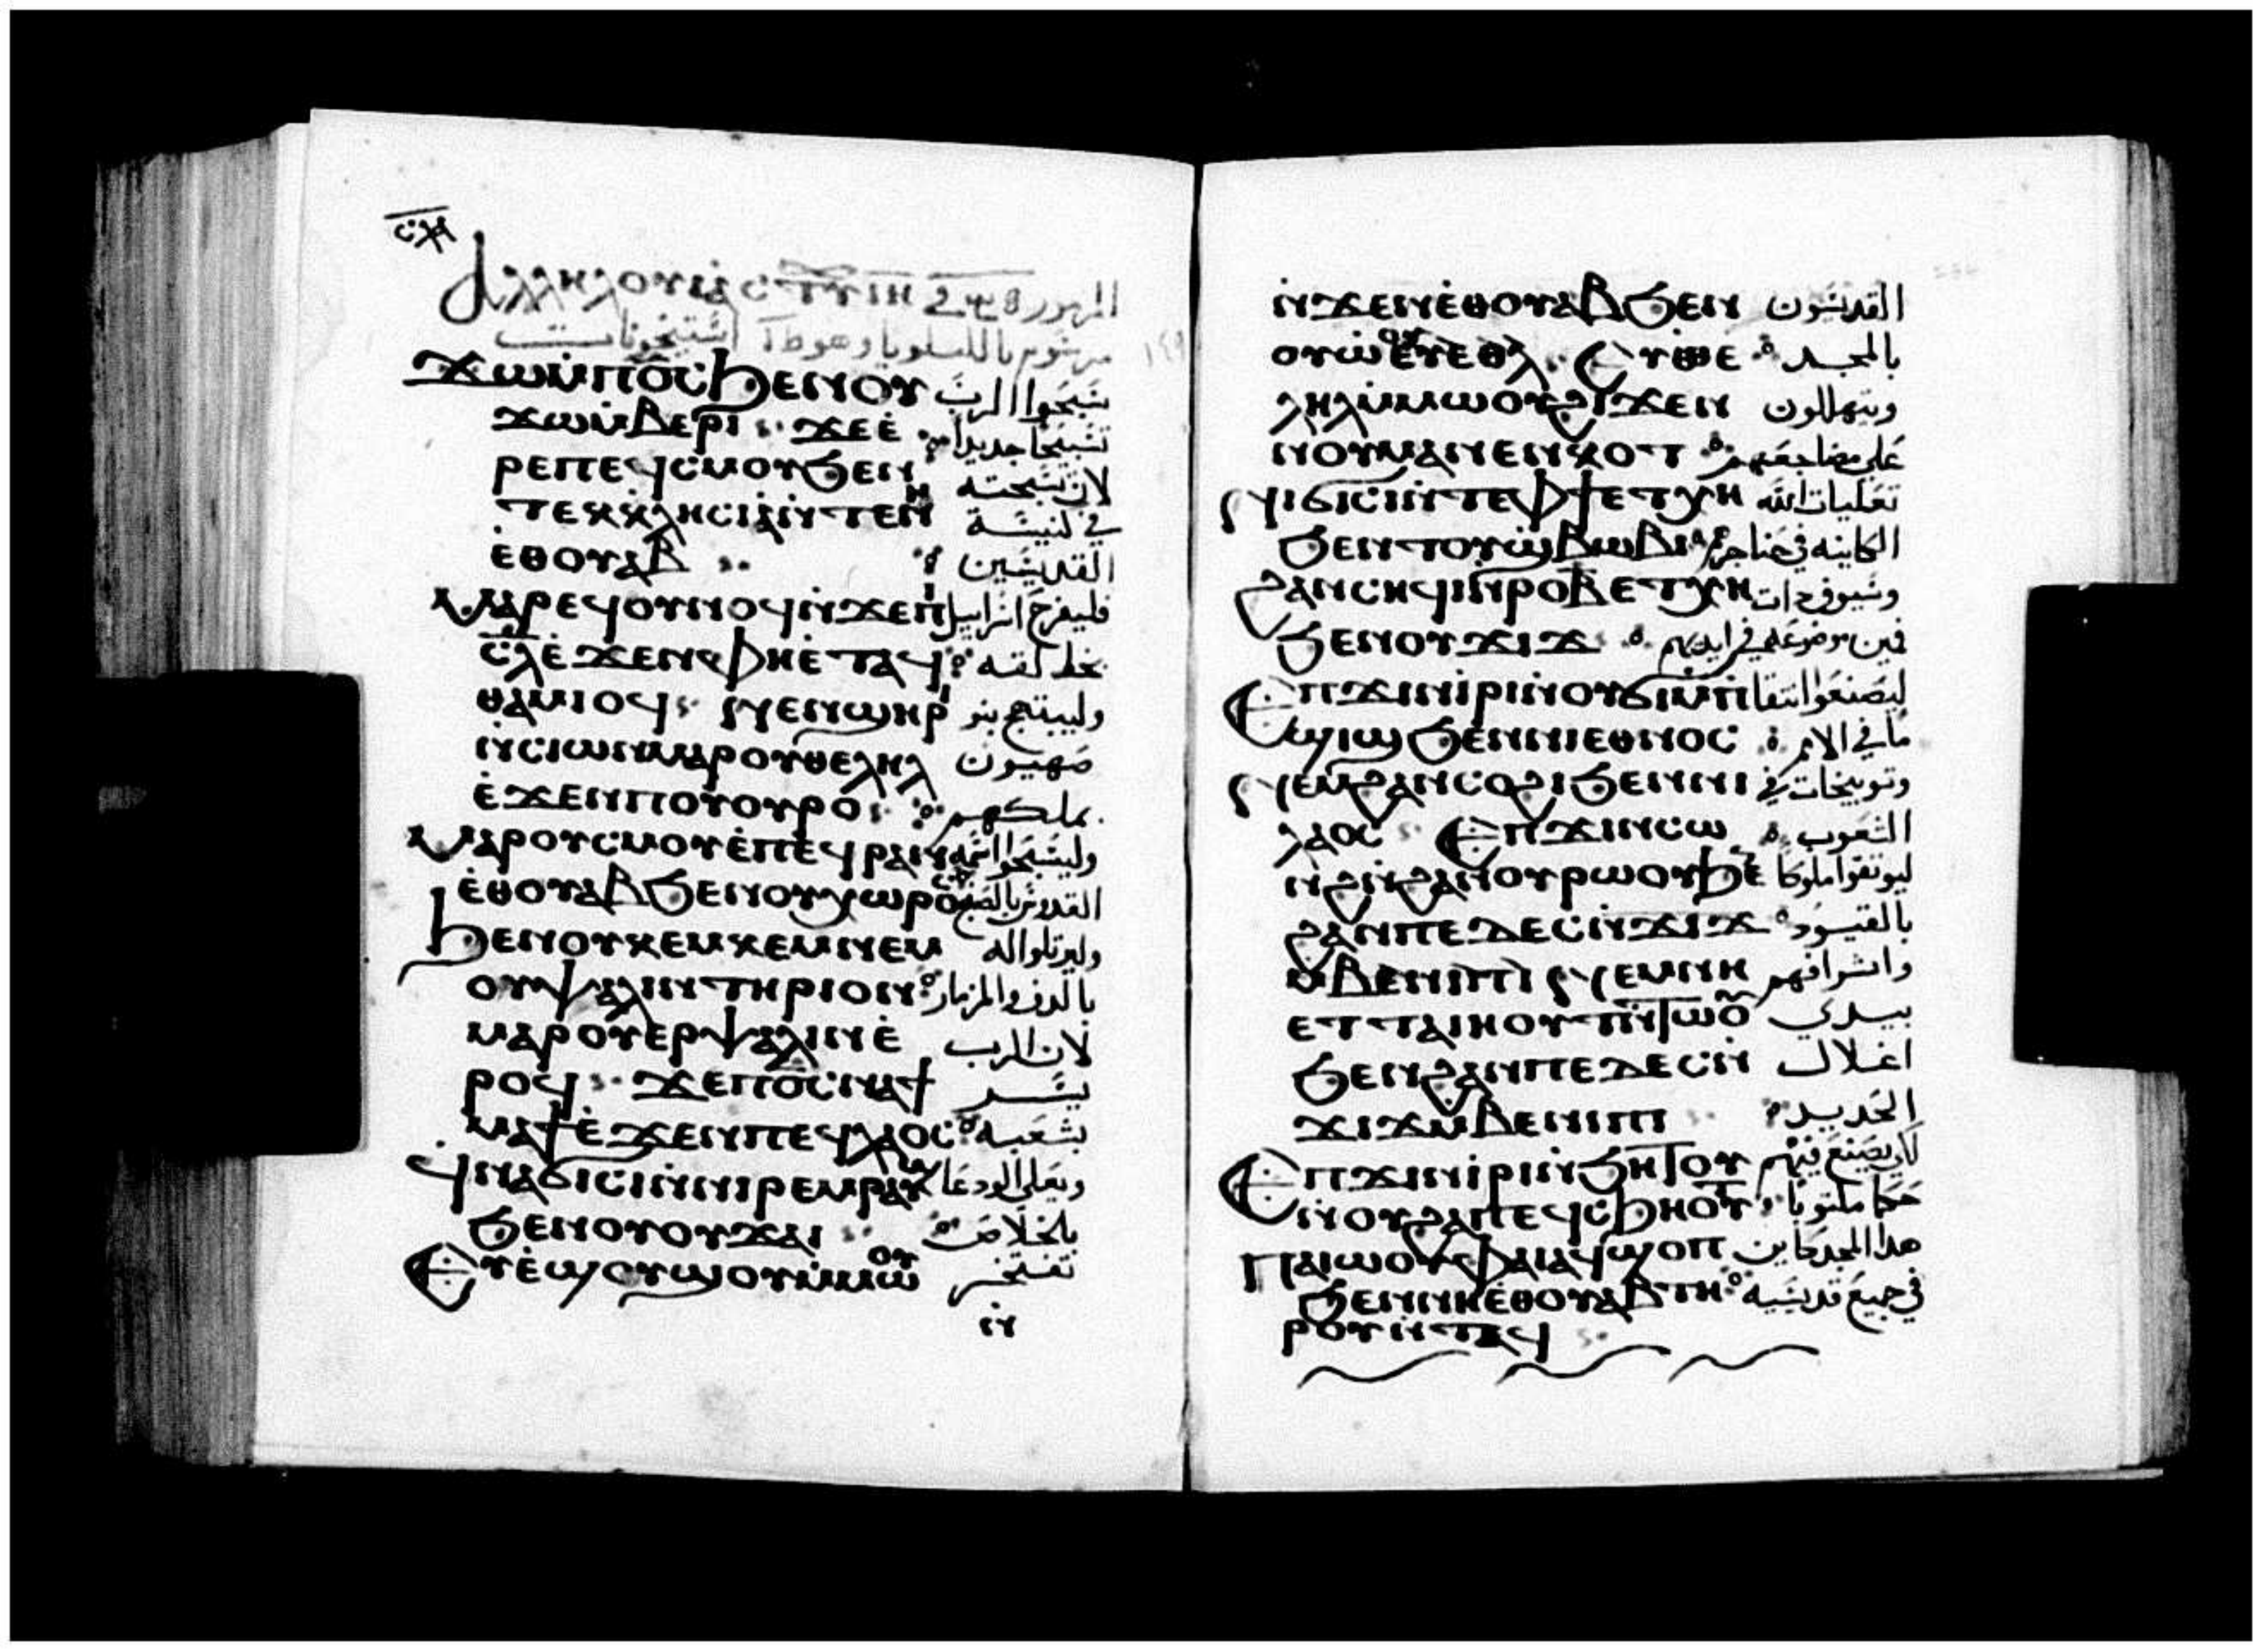 Ⲁⲗⲗⲏⲗⲟⲩⲓⲁ̀ المزمور
ϫⲱ ⲙ̀ⲡⲟ̅ⲥ̅ ϧⲉⲛⲟⲩ سبحوا الرب
ϫⲱ ⲙ̀ⲃⲉⲣⲓ : ϫⲉ ⲉ̀ تسبيحا جديدا
ⲣⲉ ⲡⲉϥⲥⲙⲟⲩ ϧⲉⲛ لان تسبحته
ⲧⲉⲕⲕⲗⲏⲥⲓⲁ̀ ⲛ̀ⲧⲉ ⲛⲏ في كنيسة
ⲉ̀ⲑⲟⲩⲁⲃ : القديسين
ⲙⲁⲣⲉϥⲟⲩⲛⲟϥ ⲛ̀ϫⲉ ⲡⲓ فليفرح اسراييل
ⲥ̅ⲗ̅ ⲉ̀ϫⲉⲛ ⲫⲏ ⲉ̀ⲧⲁϥ بخالقه
ⲑⲁⲙⲓⲟϥ : ⲛⲉⲛϣⲏⲣⲓ وليبتهج بنو
ⲛ̀ⲥⲓⲱⲛ ⲙⲁⲣⲟⲩⲑⲉⲗⲏⲗ صهيون
ⲉ̀ϫⲉⲛ ⲡⲟⲩⲟⲩⲣⲟ : بملكهم
ⲙⲁⲣⲟⲩⲥⲙⲟⲩ ⲉ̀ⲡⲉϥⲣⲁⲛ وليسبحوا اسمه
ⲉ̀ⲑⲟⲩⲁⲃ ϧⲉⲛ ⲟⲩⲭⲱⲣⲟⲥ القدوس
ϧⲉⲛ ⲟⲩⲕⲉⲙⲕⲉⲙ ⲛⲉⲙ وليرتلوا له
ⲟⲩⲯⲁⲗⲓⲛⲧⲏⲣⲓⲟⲛ بالدف والمزمار
ⲙⲁⲣⲟⲩⲉⲣⲯⲁⲗⲓⲛ ⲉ̀ لان الرب
ⲣⲟϥ : ϫⲉ ⲡⲟ̅ⲥ̅ ⲛⲁϯ يسر
ⲙⲁϯ ⲉ̀ϫⲉⲛ ⲡⲉϥⲗⲁⲟⲥ بشعبه
ϥⲛⲁϭⲓⲥⲓ ⲛ̀ⲛⲓⲣⲉⲙⲣⲁⲩϣ ويعلي الودعا
ϧⲉⲛ ⲟⲩⲟⲩϫⲁⲓ : بالخلاص
ⲉⲩⲉ̀ϣⲟⲩϣⲟⲩ ⲙ̀ⲙⲱⲟⲩ تفتخر
ⲛ̀
ⲛ̀ϫⲉ ⲛⲉⲑⲟⲩⲁⲃ ϧⲉⲛ القديسون
ⲟⲩⲱ̀ⲟⲩ ⲉⲩⲉⲑⲉ بالمجد
ⲗⲏⲗ ⲙ̀ⲙⲱⲟⲩ ϩⲓϫⲉⲛ ويتهللون
ⲛⲟⲩⲙⲁⲛⲉⲛⲕⲟⲧ على مضاجعهم
ⲛⲓϭⲓⲥⲓ ⲛ̀ⲧⲉ ⲫϯ ⲉⲧⲭⲏ تعليات الله
ϧⲉⲛ ⲧⲟⲩϣⲃⲱⲃⲓ الكاينه في حناجرهم
ϩⲁⲛⲥⲏϥⲓ ⲛ̀ⲣⲟ ⲃ ⲉⲧⲭⲏ وسيوف ذات
ϧⲉⲛ ⲟⲩϫⲓϫ فمين موضوعه في ايديهم
ⲉⲡϫⲓⲛⲓ̀ⲣⲓ ⲛ̀ⲟⲩϭⲓⲙ̀ⲡϣⲓϣ ليصنعوا انتقا
ϧⲉⲛ ⲛⲓⲉⲑⲛⲟⲥ ما في الامم
ⲛⲉⲙ ϩⲁⲛⲥⲟϩⲓ ϧⲉⲛ ⲛⲓ وتوبيخات في
ⲗⲁⲟⲥ : ⲉⲡϫⲓⲛⲥⲱ الشعوب
ⲛϩ ⲛ̀ϩⲁⲛⲟⲩⲣⲱⲟⲩ ϧⲉⲛ ليوثقوا ملوكا
ϩⲁⲛⲡⲉⲇⲉⲥ ⲛ̀ϫⲓϫ بالقيود
ⲙ̀ⲃⲉⲛⲓⲡⲓ ⲛⲉⲙ ⲛⲏ واشرافهم
ⲉⲧⲧⲁⲓⲏⲟⲩⲧ ⲛ̀ⲧⲱⲟⲩ بيدي
ϧⲉⲛ ϩⲁⲛⲡⲉⲇⲉⲥ ⲛ̀ اغلال
ϫⲓϫ ⲙ̀ⲃⲉⲛⲓⲡⲓ الحديد
ⲉⲡϫⲓⲛⲓ̀ⲣⲓ ⲛ̀ϧⲏⲧⲟⲩ كي يصنع فيهم
ⲛ̀ⲟⲩϩⲁⲡ ⲉϥⲥϧⲏⲟⲩⲧ حكما مكتوبا
ⲡⲁⲓⲱⲟⲩ ⲫⲁⲓ ⲁϥϣⲟⲡ هذا المجد كاين
ϧⲉⲛ ⲛⲏⲉ̀ⲑⲟⲩⲁⲃ ⲧⲏ في جميع قديسيه
ⲣⲟⲩ ⲛ̀ⲧⲁϥ :